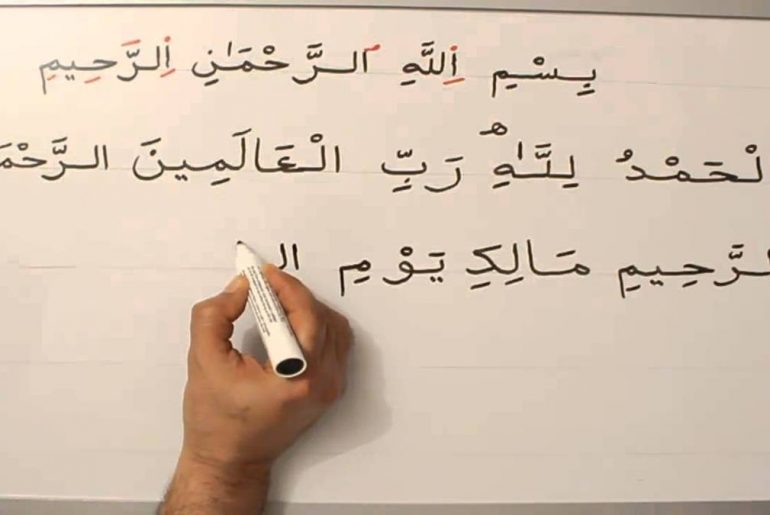 بِسْمِ اللَّهِ الرَّحْمَٰنِ الرَّحِيمِ
لْحَمْدُ لِلَّٰهِ رَبِّ الْعَالَمِينَ الرَّحْمَ
لرَّحِيمِ مَالِكِ يَوْمِ ال